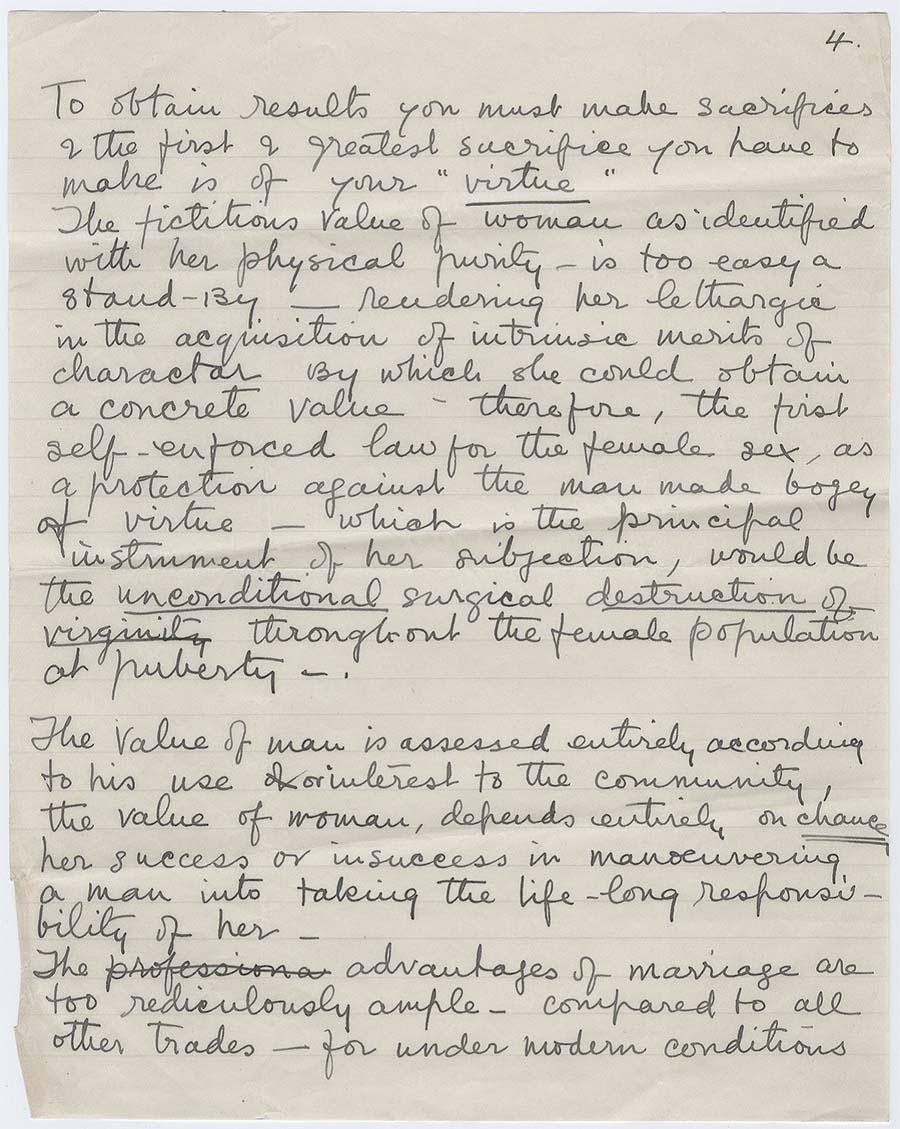 4.
To obtain results you must make sacrifices
& the first & greatest sacrifice you have to
make is of your "virtue"
The fictitious value of woman as identified
with her physical purity – is too easy a
stand-By — rendering her lethargic
in the acquisition of intrinsic merits of
charactar By which she could obtain
a concrete value – therefore, the first
self-enforced law for the female sex, as
a protection against the man made bogey
of virtue – which is the principal
instrument of her subjection, would be
the unconditional surgical destruction of
virginity throughout the female population
at puberty –.
The Value of man is assessed entirely according
to his use or interest to the community,
the value of woman, depends entirely on chance,
her success or insuccess in manœuvering
a man into taking the life-long responsi-
bility of her –
The professiona advantages of marriage are
too rediculously ample – compared to all
other trades — for under modern conditions